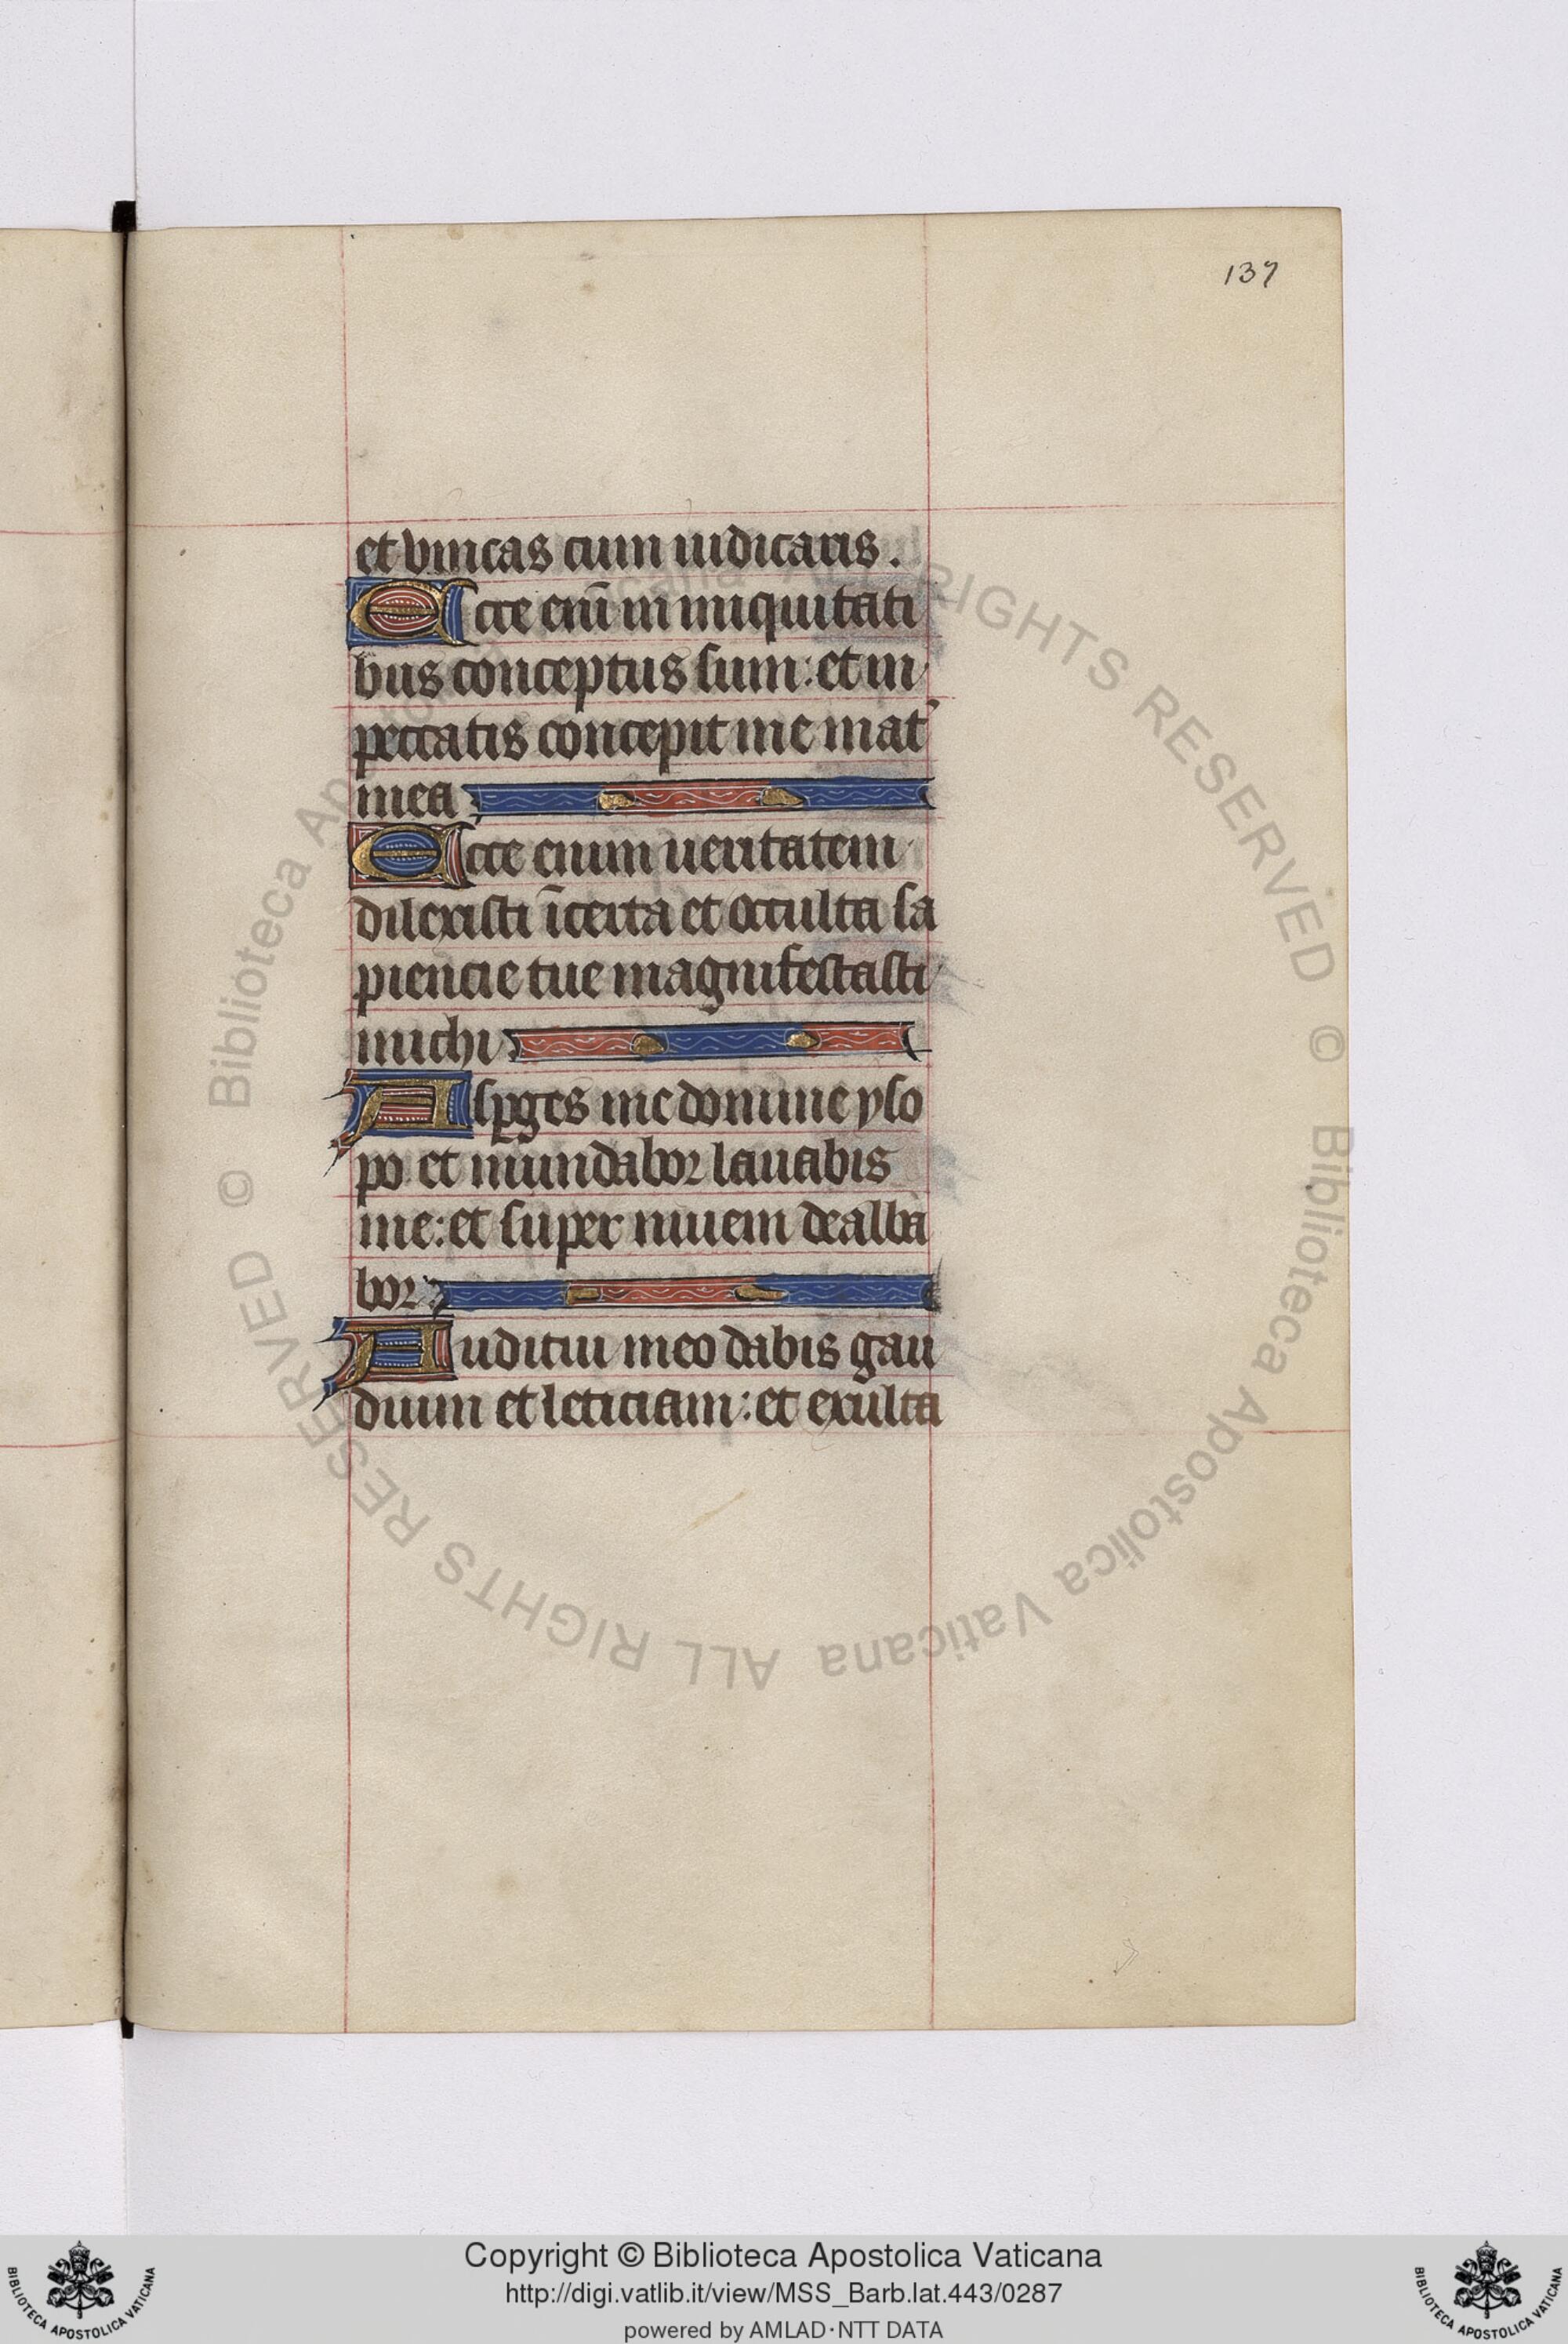 137
et vincas cum iudicaris.
Ecce eni̅ in iniquitati
bus conceptus sum: et in
peccatis concepit me mat᷑
mea
Ecce enim ueritatem
dilexisti i̅certa et occulta sa
piencie tue magnifestasti
michi
Asꝑges me domine yso
po et mundabor lauabis
me: et super niuem dealba
bor:
Auditui meo dabis gau
dium et leticiam: et exulta
© Biblioteca Apostolica Vaticana ALL RIGHTS RESERVED © Biblioteca Apostolica Vaticana ALL RIGHTS RESERVED
BIBLIOTECA APOSTOLICA VATICANA
Copyright © Biblioteca Apostolica Vaticana
http://digi.vatlib.it/view/MSS_Barb.lat.443/0287
powered by AMLAD·NTT DATA
BIBLIOTECA APOSTOLICA VATICANA